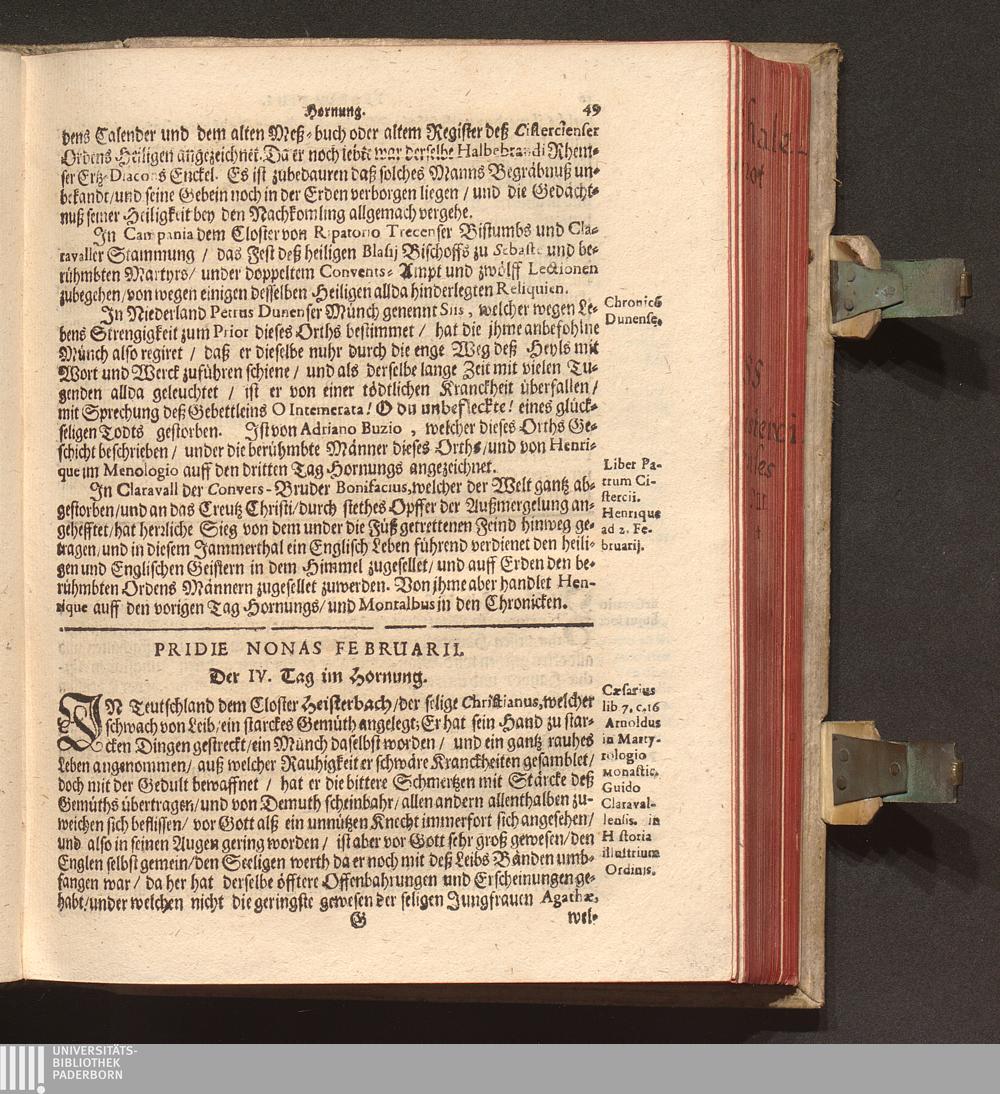 Hornung. 49
dens Calender und dem alten Meß-buch oder altem Register deß Cistercienser
Ordens Heiligen angezeichnet. Da er noch lebte war derselbe Halbebrandi Rhem-
ser Ertz-Diacons Enckel. Es ist zubedauren daß solches Manns Begräbnuß un-
bekandt/und seine Gebein noch in der Erden verborgen liegen / und die Gedächt-
nuß seiner Heiligkeit bey den Nachkömling allgemach vergehe.
In Campania dem Closter von Ripatorio Trecenser Bistumbs und Cla-
ravaller Stammung / das Fest deß heiligen Blasij Bischoffs zu Sebaste und be-
rühmbten Martyrs/ under doppeltem Convents-Ampt und zwölff Lectionen
zubegehen/von wegen einigen desselben Heiligen allda hinderlegten Reliquien.
In Niederland Petrus Dunenser Münch genennt Sns, welcher wegen Le-
bens Strengigkeit zum Prior dieses Orths bestimmet / hat die jhme anbefohlne
Münch also regiret / daß er dieselbe nuhr durch die enge Weg deß Heyls mit
Wort und Werck zuführen schiene / und als derselbe lange Zeit mit vielen Tu-
genden allda geleuchtet / ist er von einer tödtlichen Kranckheit überfallen /
mit Sprechung deß Gebettleins O Intemerata! O du unbefleckte! eines glück-
seligen Todts gestorben. Ist von Adriano Buzio , welcher dieses Orths Ge-
schicht beschrieben / under die berühmbte Männer dieses Orths/und von Henri-
que im Menologio auff den dritten Tag Hornungs angezeichnet.
Chronicō
Dunense.
In Claravall der Convers-Bruder Bonifacius,welcher der Welt gantz ab-
gestorben/und an das Creutz Christi/durch stethes Opffer der Außmergelung an-
gehefftet/hat herzliche Sieg von dem under die Füß getrettenen Feind hinweg ge-
tragen/und in diesem Jammerthal ein Englisch Leben führend verdienet den heili-
gen und Englischen Geistern in dem Himmel zugesellet/ und auff Erden den be-
rühmbten Ordens Männern zugesellet zuwerden. Von jhme aber handlet Hen-
rique auff den vorigen Tag Hornungs/und Montalbus in den Chronicken.
Liber Pa-
trum Ci-
stercii.
Henrique
ad 2. Fe-
bruarij.
PRIDIE NONAS FEBRUARII.
Der IV. Tag im Hornung.
IN Teutschland dem Closter Heisterbach/der selige Christianus,welcher
schwach von Leib/ein starckes Gemüth angelegt; Er hat sein Hand zu star-
cken Dingen gestreckt/ein Münch daselbst worden / und ein gantz rauhes
Leben angenommen/ auß welcher Rauhigkeit er schwäre Kranckheiten gesamblet/
doch mit der Gedult bewaffnet / hat er die bittere Schmertzen mit Stärcke deß
Gemüths übertragen/und von Demuth scheinbahr/allen andern allenthalben zu-
weichen sich beflissen/ vor Gott alß ein unnützen Knecht immerfort sich angesehen/
und also in seinen Augen gering worden / ist aber vor Gott sehr groß gewesen/den
Englen selbst gemein/den Seeligen werth da er noch mit deß Leibs Bänden umb-
fangen war / da her hat derselbe öfftere Offenbahrungen und Erscheinungen ge-
habt/under welchen nicht die geringste gewesen der seligen Jungfrauen Agathæ,
Cæsarius
lib 7. c.16
Arnoldus
in Marty-
rologio
Monastic.
Guido
Claraval-
lensis. in
Historia
illustrium
Ordinis.
G wel-
UNIVERSITÄTS-
BIBLIOTHEK
PADERBORN